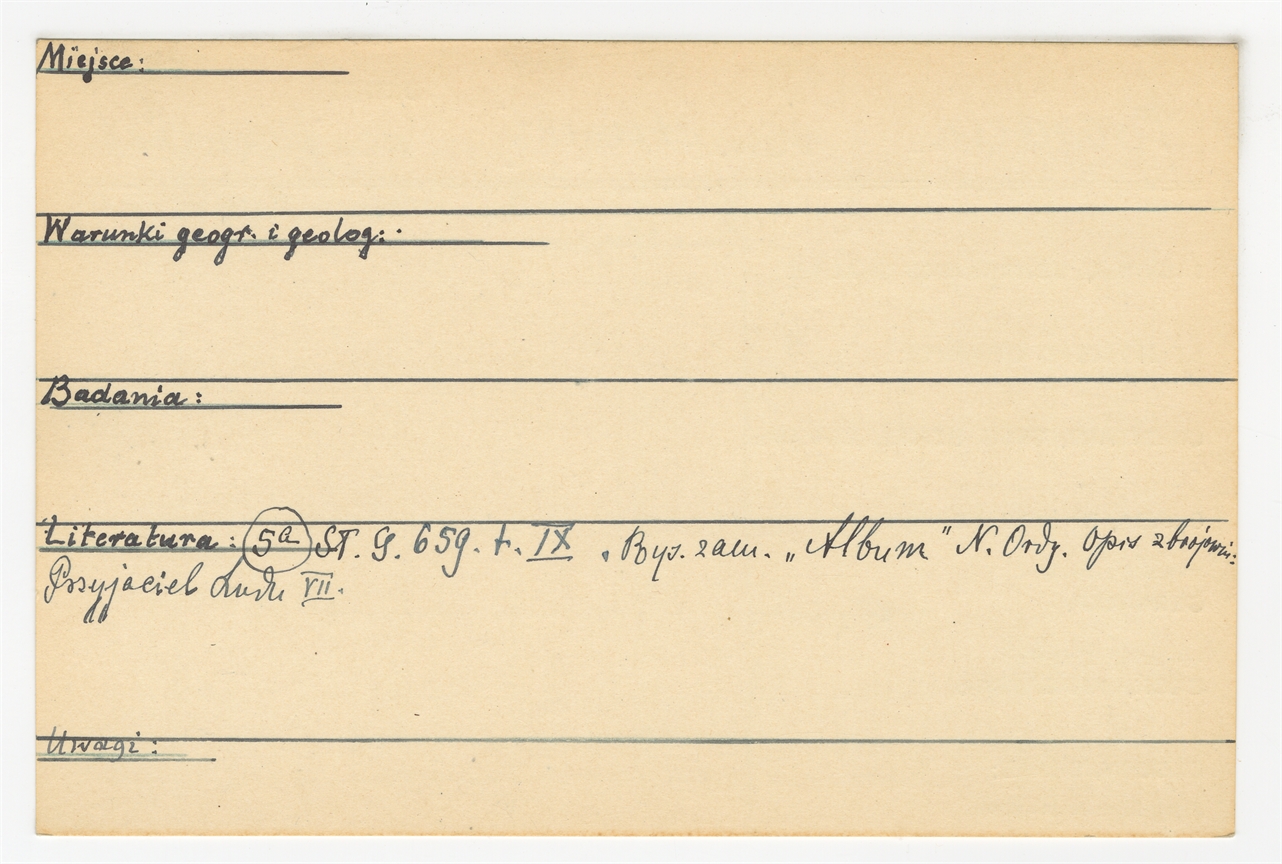 Miejsce:
Warunki geogr. i geolog:
Badania:
Literatura: 5a ST. G. 659. t. IX. Rys. zam. „Album" N. Ordy. Opis zbrojowni:
Przyjaciel Ludu VII.
Uwagi: